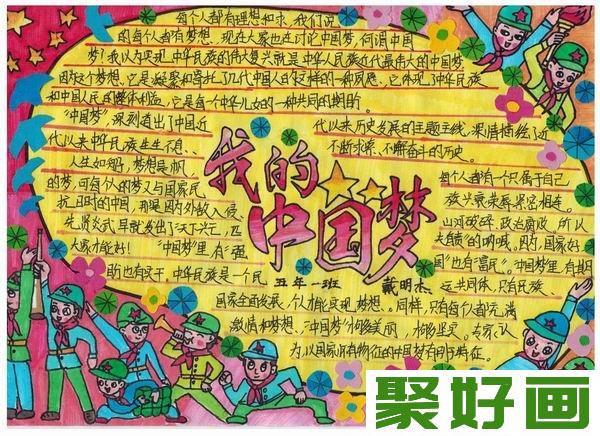 每个人都有理想和追求,我们说
的每个人都有梦想。现在大家也在讨论中国梦,何谓中国
梦?我以为实现中华民族的伟大复兴就是中华人民族近代最伟大的中国梦
因为这个梦想,它是凝聚和寄托了几代中国人的这样的一种夙愿,它体现中华民族
和中国人民的整体利益,它是每个中华儿女的一种共同的期盼。
"中国梦",深刻道出了中国近
代以来历史发展的主题主线,深情描绘了近
代以来中华民族生生不息、
不断求索、不懈奋斗的历史。
人生如
,梦想是帆
每个人都有一个只属于自己
的梦,可每个人的梦又与国家民
族兴衰荣
紧密相连。
抗日时的中国,那是因为外敌入侵、
山河破碎、政治腐败,所以
先
早就发出了
天下兴亡,匹
夫
的呐喊。因为,国家好
大家才能好!
"中国梦"里,有"强
国"也有"富民"。"中国梦"里,有期
盼也有实干,中华民族是一个
运共同体,只有民族
我的
中国梦
五年一班
戴明杰
国家全面发展,个人才能实现梦想。同样,只有每个人都充满
激情和梦想、"中国梦"才够美丽、才够坚实。专家认
为,以国家
特征的中国梦有
特征。
聚好画